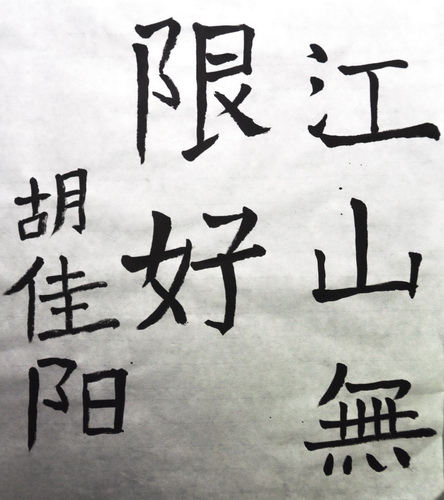 江山無
限好
胡佳阳